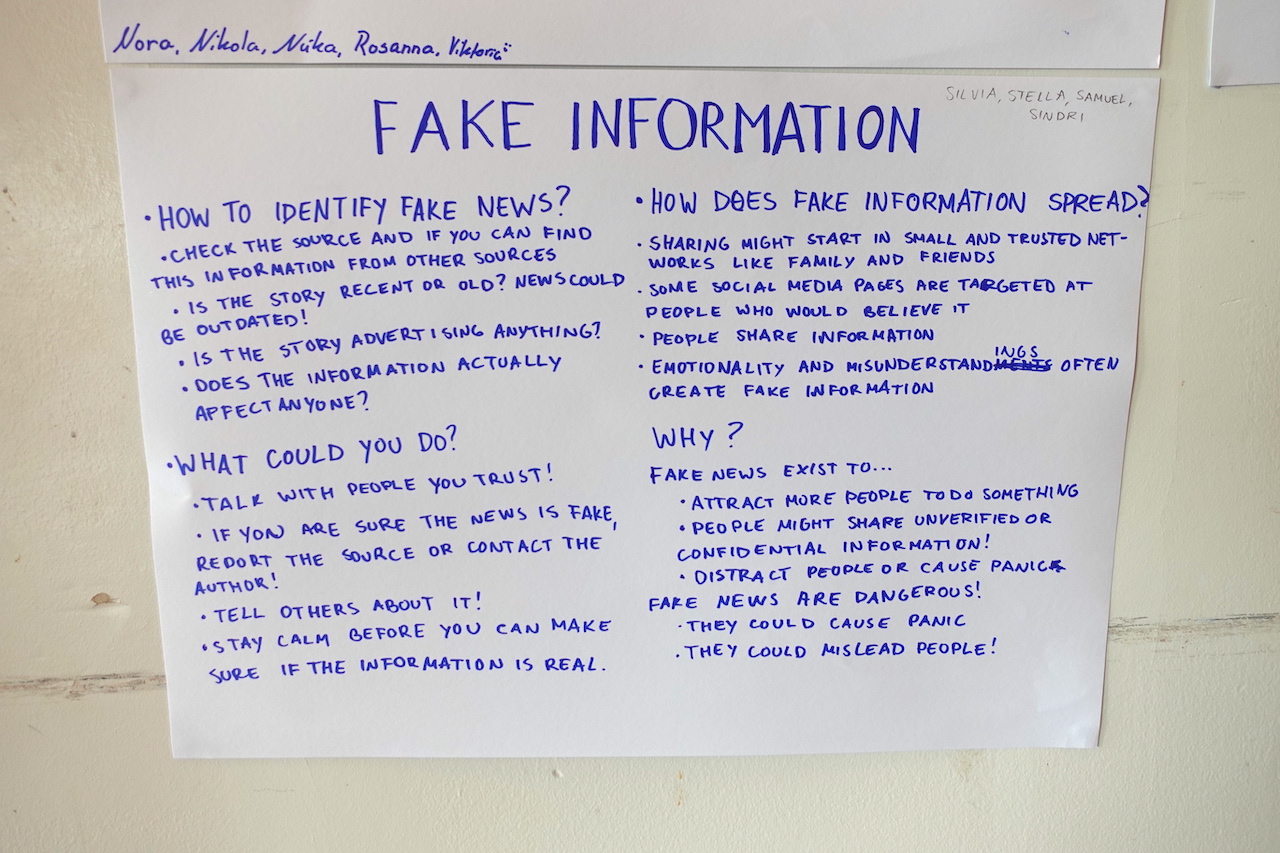 Nora, Nikola, Niika, Rosanna, Viktoria
SILVIA, STELLA, SAMUEL,
SINDRI
FAKE INFORMATION
• HOW TO IDENTIFY FAKE NEWS?
• CHECK THE SOURCE AND IF YOU CAN FIND
THIS INFORMATION FROM OTHER SOURCES
• IS THE STORY RECENT OR OLD? NEWS COULD
BE OUTDATED!
• IS THE STORY ADVERTISING ANYTHING?
• DOES THE INFORMATION ACTUALLY
AFFECT ANYONE?
• WHAT COULD YOU DO?
• TALK WITH PEOPLE YOU TRUST!
• IF YOU ARE SURE THE NEWS IS FAKE,
REPORT THE SOURCE OR CONTACT THE
AUTHOR!
• TELL OTHERS ABOUT IT!
• STAY CALM BEFORE YOU CAN MAKE
SURE IF THE INFORMATION IS REAL.
• HOW DOES FAKE INFORMATION SPREAD?
• SHARING MIGHT START IN SMALL AND TRUSTED NET-
WORKS LIKE FAMILY AND FRIENDS
• SOME SOCIAL MEDIA PAGES ARE TARGETED AT
PEOPLE WHO WOULD BELIEVE IT
• PEOPLE SHARE INFORMATION
• EMOTIONALITY AND MISUNDERSTANDINGS OFTEN
CREATE FAKE INFORMATION
WHY?
FAKE NEWS EXIST TO...
• ATTRACT MORE PEOPLE TO DO SOMETHING
• PEOPLE MIGHT SHARE UNVERIFIED OR
CONFIDENTIAL INFORMATION!
• DISTRACT PEOPLE OR CAUSE PANIC
FAKE NEWS ARE DANGEROUS!
• THEY COULD CAUSE PANIC
• THEY COULD MISLEAD PEOPLE!